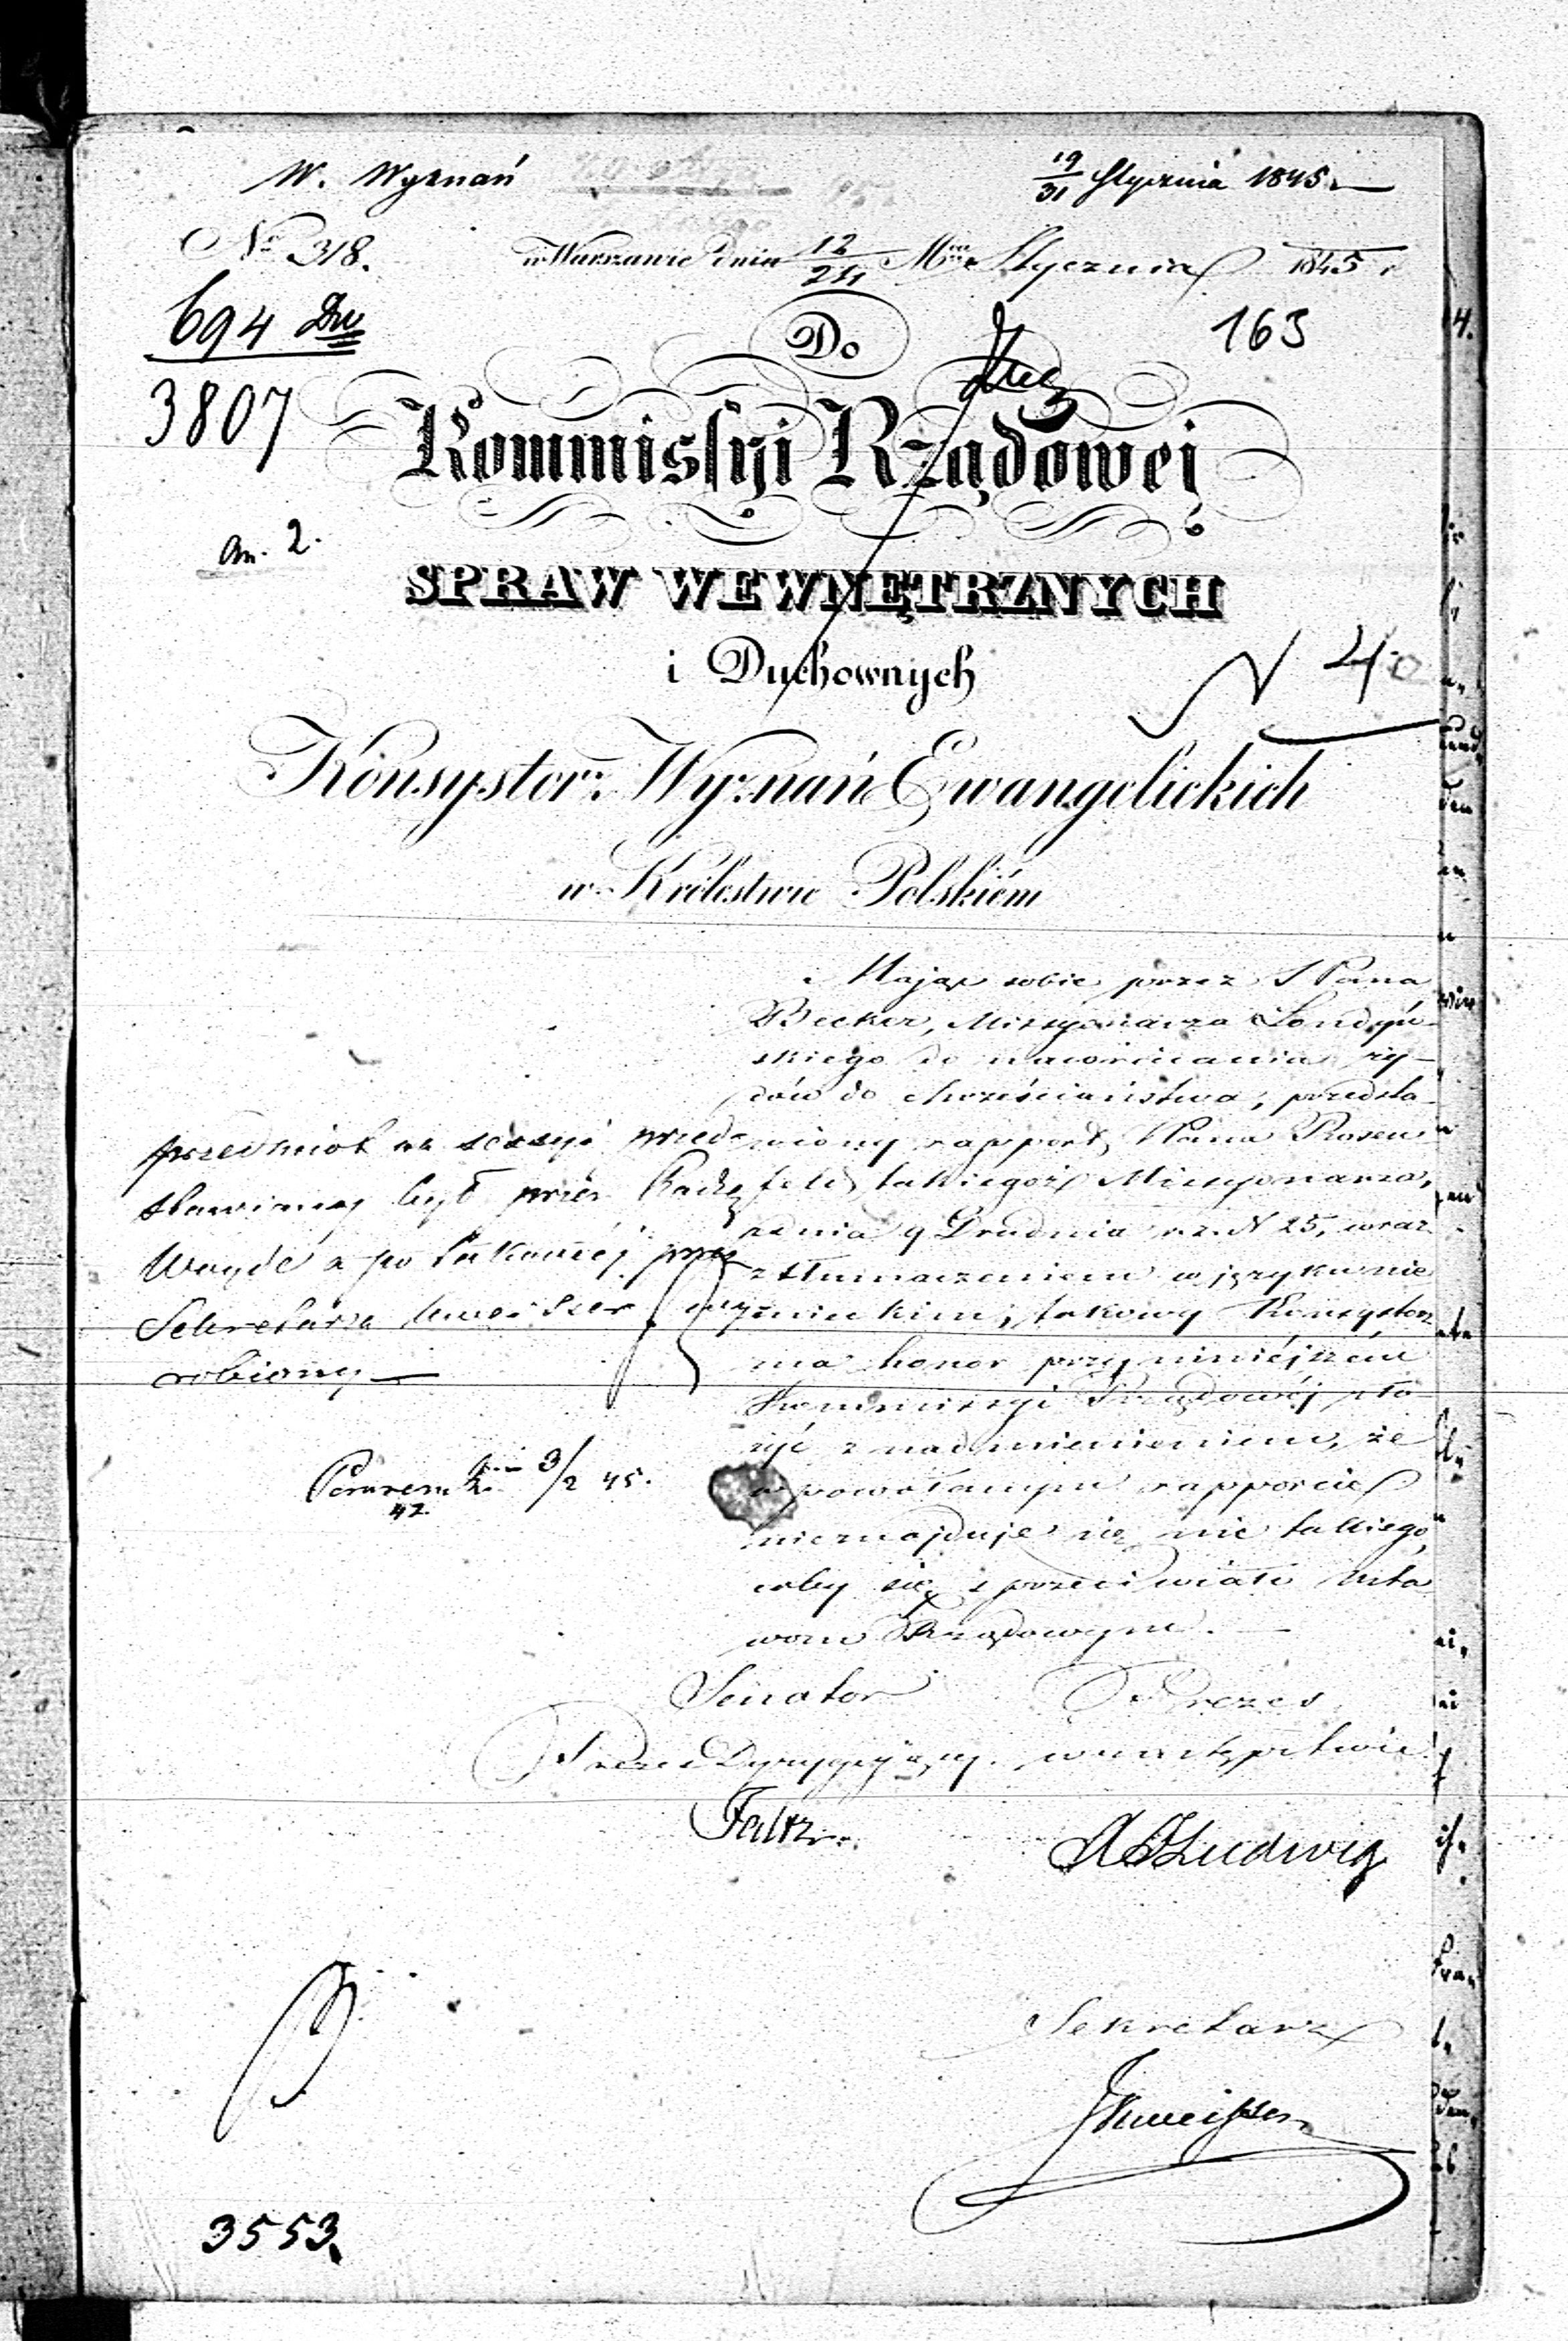 W. Wyznań
19/31 Stycznia 1845.
No 318.
w Warszawie dnia 12/24 Mca Stycznia 1845 r
694
3807
Do
163
Kommissyi Rządowej
an. 2.
SPRAW WEWNĘTRZNYCH
i Duchownych
N 4
Konsystorz Wyznań Ewangelickich
w Królestwie Polskiém
Mając sobie przez Pana
Becker, Missyonarza Londyń-
skiego do nawracania ży-
dów do chrześciaństwa, przedsta-
wiony rapport Pana Rosen
feld takiegoż Missyonarza,
z dnia 9 Grudnia r. z. N 25, wraz
z tłumaczeniem w języku nie
mieckim, takowy Konsystorz
ma honor przy niniéjszém
Kommissyi Rządowéj zło-
żyć z nadmienieniem, że
w powołanym rapporcie
nieznajduje się nic takiego,
coby się sprzeciwiało Usta
wom Rządowym.
przedmiot na sessyi przed-
stawiony był przez Radzcę
Woyde a po
Sekretarza
robiony
3/2 45.
42.
Senator
Prezes Dyrygujący.
Faltz
Prezes
w zastępstwie
Ludwig
Sekretarz
Kweisser
3553